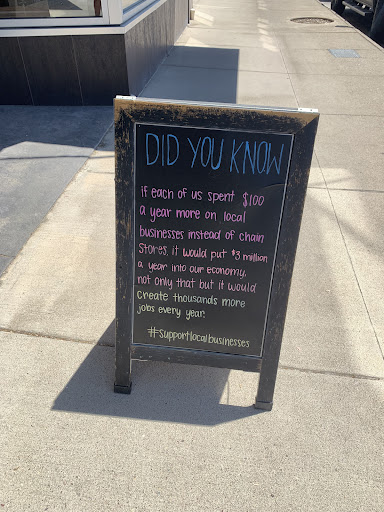 DID YOU KNOW
if each of us spent $100
a year more on local
businesses instead of chain
Stores, it would put $3 million
a year into our economy,
not only that but it would
Create thousands more
jobs every year.
#supportlocalbusinesses